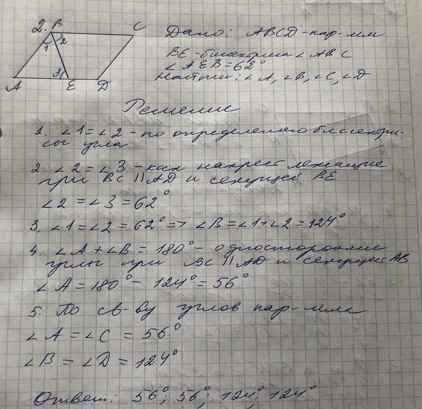 2. B C
1 2
3
A E D
Дано: ABCD-пар-мм
BE-биссектриса ∠ABC
∠AEB=62°
Найти: ∠A, ∠B, ∠C, ∠D
Решение
1. ∠1=∠2 - по определению биссектри-
сы угла
2. ∠2=∠3 - как накрест лежащие
при BC || AD и секущей BE
∠2=∠3=62°
3. ∠1=∠2=62° => ∠B=∠1+∠2=124°
4. ∠A+∠B=180° - односторонние
углы при BC || AD и секущей AB
∠A=180°-124°=56°
5. По св-ву углов пар-мма
∠A=∠C=56°
∠B=∠D=124°
Ответ: 56°; 56°; 124°; 124°